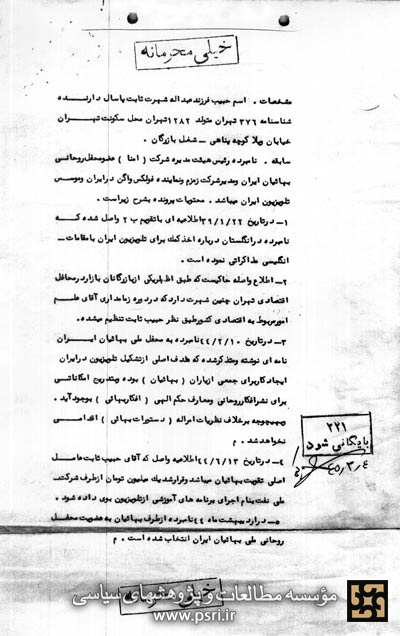 خیلی محرمانه
مشخصات . اسم حبیب فرزند عبداله شهرت ثابت پاسال دارنده
شناسنامه ۳۷۶ تهران متولد ۱۲۸۲ تهران محل سکونت تهران
خیابان ویلا کوچه پناهی ـ شغل بازرگان .
سابقه . نامبرده رئیس هیئت مدیره شرکت ( امنا ) عضو محفل روحانی
بهائیان ایران ومدیر شرکت زمزم ونماینده فولکس واگن در ایران وموسس
تلویزیون ایران میباشد . محتویات پرونده بشرح زیر است .
۱ـ در تاریخ ۳۹/۱/۲۲ اطلاعیه ای با تقویم ب ۲ واصل شده که
نامبرده در انگلستان درباره اخذ کمک برای تلویزیون ایران با مقامات ـ
انگلیسی مذاکراتی نموده است .
۲ـ اطلاع واصله حاکیست که طبق اظهار یکی از بازرگانان بازار در محافل
اقتصادی تهران چنین شهرت دارد که در دوره زمامداری آقای علم
امور مربوط به اقتصادی کشور طبق نظر حبیب ثابت تنظیم میشده .
۳ـ در تاریخ ۴۴/۲/۱۰ نامبرده به محفل ملی بهائیان ایران
نامه ای نوشته ومتذکر شده که هدف اصلی از تشکیل تلویزیون در ایران
ایجاد کار برای جمعی از یاران ( بهائیان ) بوده وبتدریج امکاناتی
برای نشر افکار روحانی ومعارف حکم الهی ( افکار بهائی ) بوجود آید .
وبهیچوجه بر خلاف نظریات امراله ( دستورات بهائی ) اقدامی
نخواهد شد . م
۴ـ در تاریخ ۴۴/۶/۱۳ اطلاعیه واصل که آقای حبیب ثابت عامل
اصلی تقویت بهائیان میباشد وقرار شد یک میلیون تومان از طرف شرکت
ملی نفت بنام اجرای برنامه های آموزشی از تلویزیون بوی داده شود .
۵ـ در اردیبهشت ماه ۴۴ نامبرده از طرف بهائیان به عضویت محفل
روحانی ملی بهائیان ایران انتخاب شده است . م
۲۲۱
بایگانی شود
۴۵/۳/۴
خیلی محرمانه
مؤسسه مطالعات و پژوهشهای سیاسی
www.psri.ir